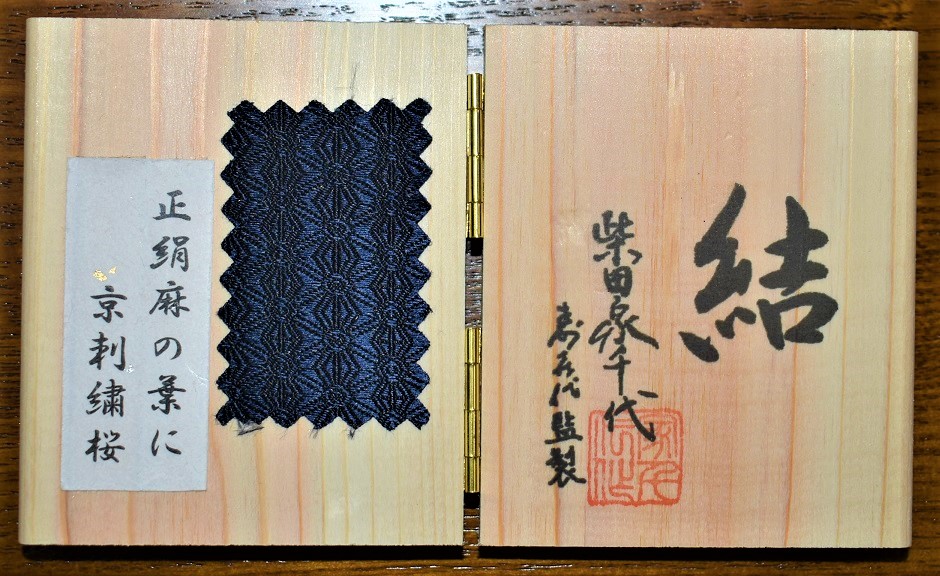 結
柴田家千代
監製
正絹麻の葉に
京刺繍桜